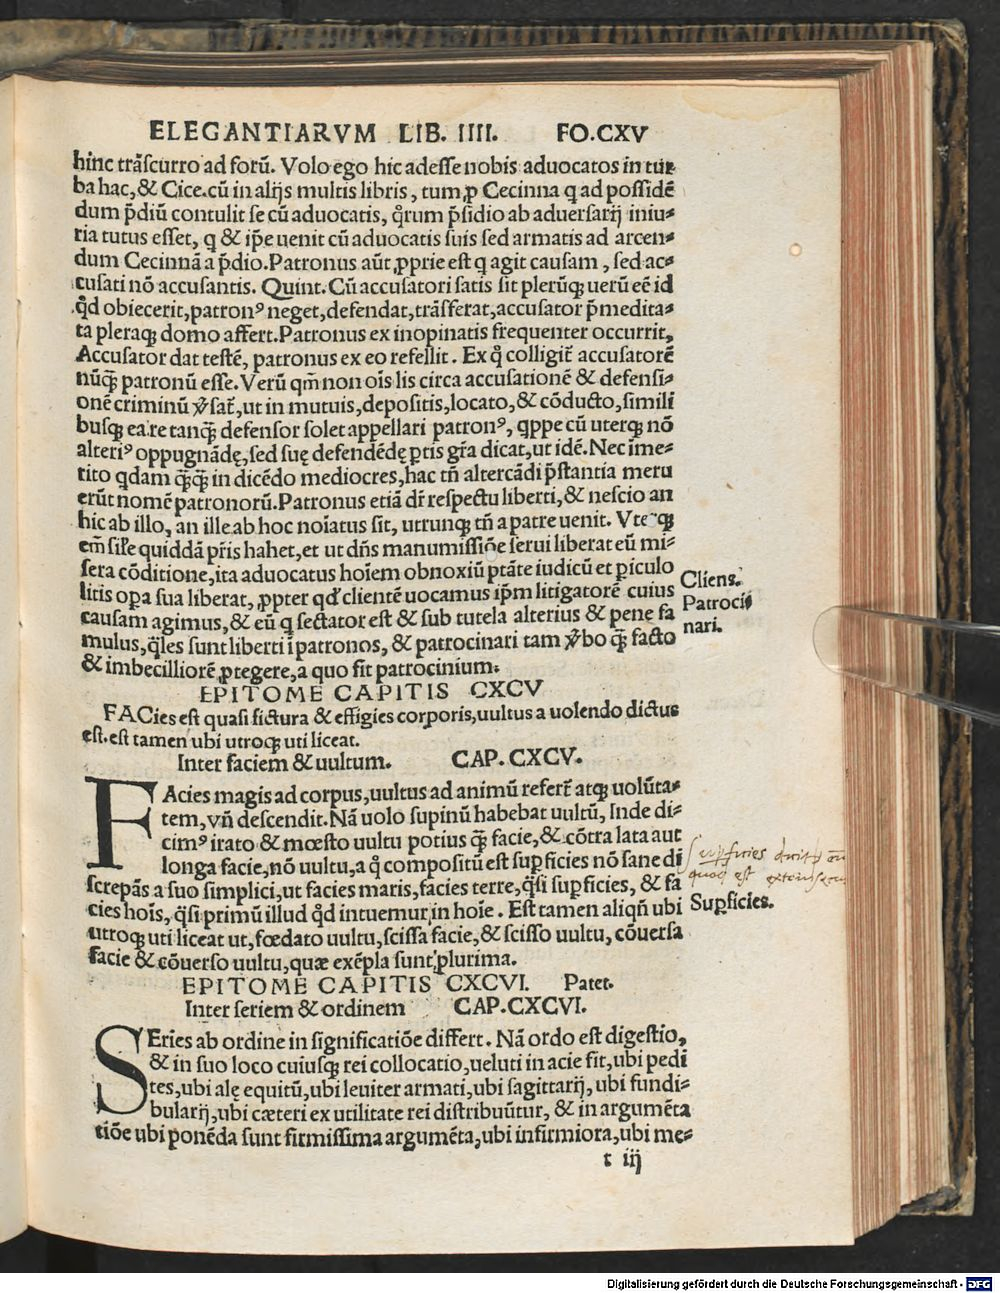 ELEGANTIARVM LIB. IIII. FO.CXV
hinc trãscurro ad forũ. Volo ego hic adesse nobis aduocatos in tur-
ba hac, & Cice.cũ in alijs multis libris, tum ꝓ Cecinna q ad possidẽ
dum p̃diũ contulit se cũ aduocatis, q̊rum p̃sidio ab aduersarij iniu-
ria tutus esset, q & ip̃e uenit cũ aduocatis suis sed armatis ad arcen-
dum Cecinnã a p̃dio.Patronus aũt ꝓprie est q agit causam, sed ac-
cusati nõ accusantis. Quint. Cũ accusatori satis sit plerũqꝫ uerũ eẽ id
qd̉ obiecerit, patronꝰ neget, defendat, trãsferat, accusator p̃medita-
ta pleraqꝫ domo affert.Patronus ex inopinatis frequenter occurrit,
Accusator dat testẽ, patronus ex eo refellit. Ex q̊ colligit̃ accusatorẽ
nũq̃ꝫ patronũ esse.Verũ qm̃ non oĩs lis circa accusationẽ & defensi-
onẽ criminũ ꝟsat̃, ut in mutuis, depositis, locato, & cõducto, simili
busqꝫ ea re tanq̃ꝫ defensor solet appellari patronꝰ, qppe cũ uterqꝫ nõ
alteriꝰ oppugnãdę, sed suę defendẽdę ꝑtis gr̃a dicat, ut idẽ. Nec ime-
rito qdam q̃ꝫq̃ꝫ in dicẽdo mediocres, hac tñ altercãdi p̃stantia meru
erũt nomẽ patronorũ.Patronus etiã dr̃ respectu liberti, & nescio an
hic ab illo, an ille ab hoc noĩatus sit, utrunqꝫ tñ a patre uenit. Vterqꝫ
em̃ sil̃e quiddã pr̃is hahet, et ut dñs manumissiõe serui liberat eũ mi-
sera cõditione, ita aduocatus hoĩem obnoxiũ ptãte iudicũ et ꝑiculo
litis oꝑa sua liberat, ꝓpter qd̉ clientẽ uocamus ip̃m litigatorẽ cuius
causam agimus, & eũ q sectator est & sub tutela alterius & pene fa
mulus, q̃les sunt liberti ĩ patronos, & patrocinari tam ꝟbo q̃ꝫ facto
& imbecilliorẽ ꝓtegere, a quo fit patrocinium.
Cliens.
Patroci-
nari.
EPITOME CAPITIS CXCV
FACies est quasi fictura & effigies corꝑoris, uultus a uolendo dictus
est. est tamen ubi utroqꝫ uti liceat.
Inter faciem & uultum. CAP. CXCV.
FAcies magis ad corpus, uultus ad animũ refert̃ atqꝫ uolũta-
tem, vñ descendit. Nã uolo supinũ habebat uultũ, Inde di-
cimꝰ irato & mœsto uultu potius q̃ꝫ facie, & cõtra lata aut
longa facie, nõ uultu, a q̊ compositũ est suꝑficies nõ sane di
screpãs a suo simplici, ut facies maris, facies terre, q̃si suꝑficies, & fa
cies hoĩs, q̃si primũ illud qd̉ intuemur in hoĩe. Est tamen aliqñ ubi
utroqꝫ uti liceat ut, fœdato uultu, scissa facie, & scisso uultu, cõuersa
facie & cõuerso uultu, quæ exẽpla sunt plurima.
suꝑficies dicit̃
quoq est
Suꝑficies.
EPITOME CAPITIS CXCVI. Patet.
Inter seriem & ordinem CAP.CXCVI.
SEries ab ordine in significatiõe differt. Nã ordo est digestio,
& in suo loco cuiusqꝫ rei collocatio, ueluti in acie fit, ubi pedi
tes, ubi alę equitũ, ubi leuiter armati, ubi sagittarij, ubi fundi-
bularij, ubi cæteri ex utilitate rei distribuũtur, & in argumẽta
tiõe ubi ponẽda sunt firmissima argumẽta, ubi infirmiora, ubi me-
t iij
Digitalisierung gefördert durch die Deutsche Forschungsgemeinschaft - DFG